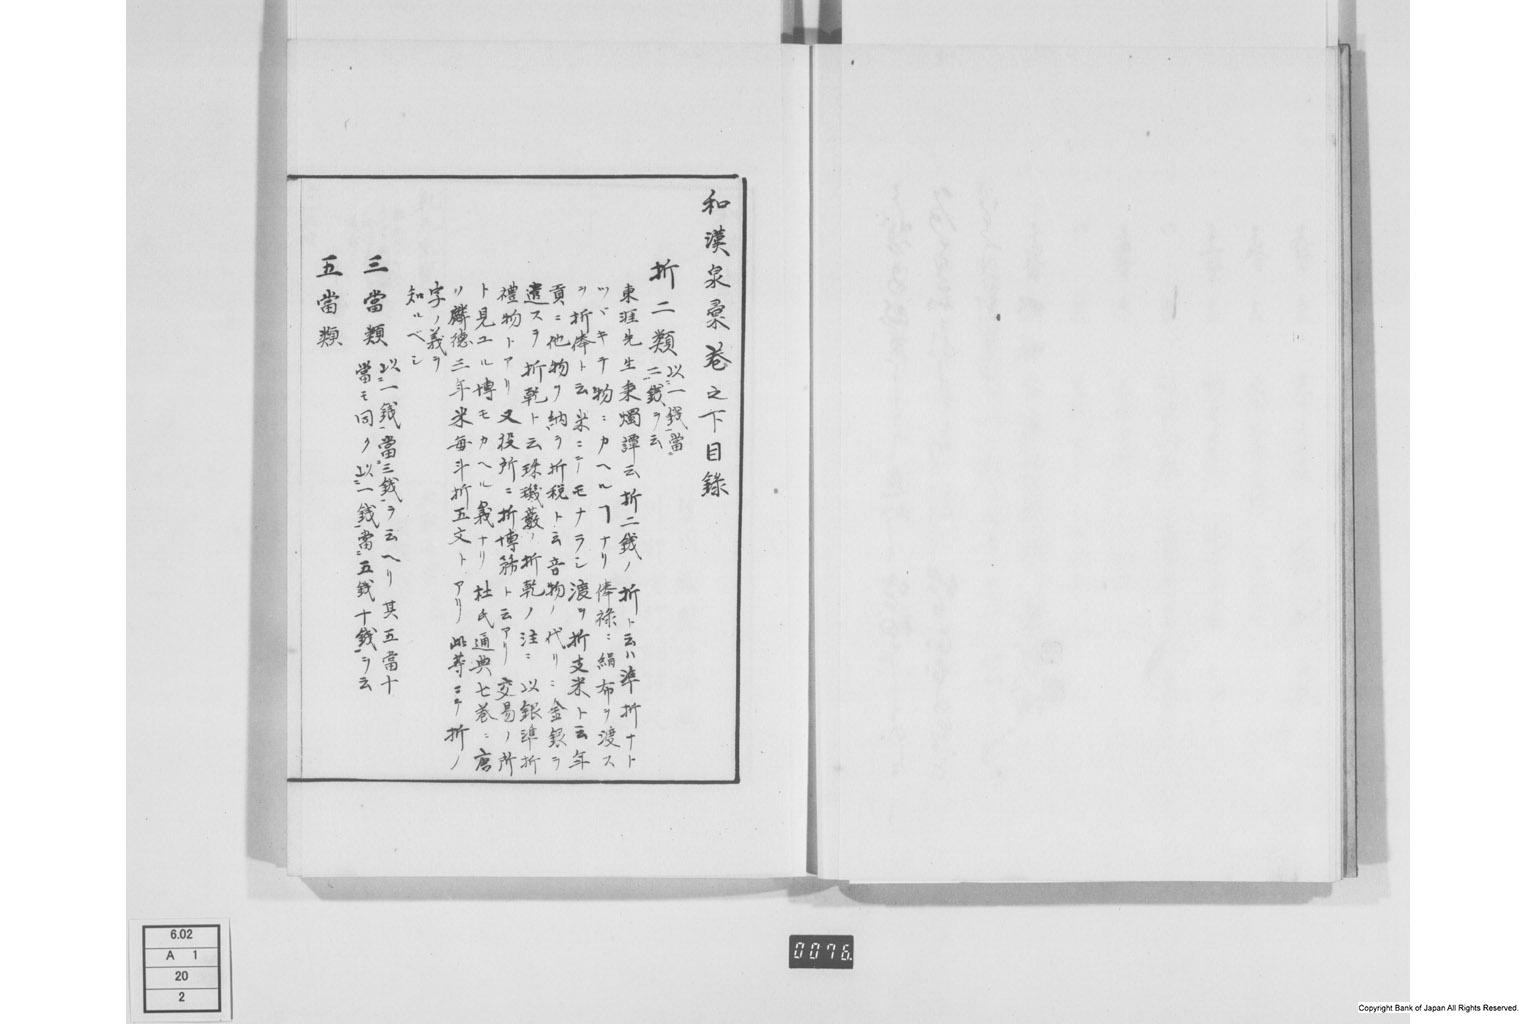 和漢泉彙巻之下目録
折二類
以一錢當
二錢ヲ云
東涯先生秉燭譚云折二錢ノ折ト云ハ準折ナト
ツヾキテ物ニカヘルヿナリ俸祿ニ絹布ヲ渡ス
ヲ折俸ト云米ニテモナラシ渡ヲ折支米ト云年
貢ニ他物ヲ納ヲ折税ト云音物ノ代リニ金銀ヲ
遣スヲ折乾ト云珠璣藪ノ折乾ノ注ニ以銀準折
禮物トアリ又役所ニ折博務ト云アリ交易ノ所
ト見ユル博モカヘル義ナリ杜氏通典七巻ニ唐
ノ麟德三年米毎斗折五文トアリ此等ニテ折ノ
字ノ義ヲ
知ルベシ
三當類
以一錢當三錢ヲ云ヘリ其五當十
當モ同ク以一錢當五錢十錢ヲ云
五當類
6.02
A 1
20
2
0076
Copyright Bank of Japan All Rights Reserved.